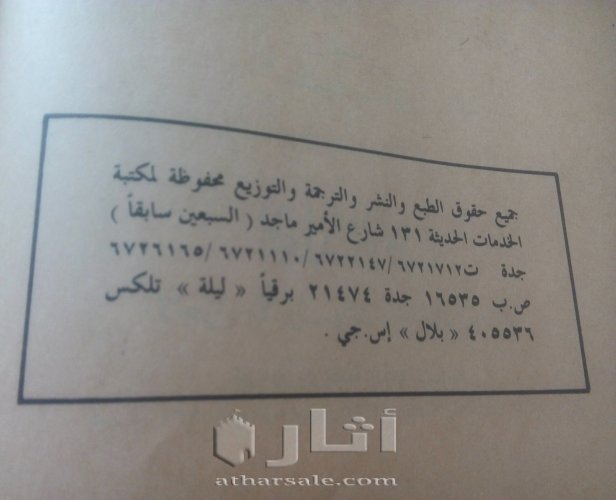 جميع حقوق الطبع والنشر والترجمة والتوزيع محفوظة لمكتبة
الخدمات الحديثة ١٣١ شارع الأمير ماجد ( السبعين سابقاً )
جدة ت ٦٧٢١٧١٢/ ٦٧٢٢١٤٧/ ٦٧٢١١١٠/ ٦٧٢٦١٦٥
ص.ب ١٦٥٣٥ جدة ٢١٤٧٤ برقياً « ليلة » تلكس
٤٠٥٥٣٦ « بلال » إس.جي .
أثار
atharsale.com